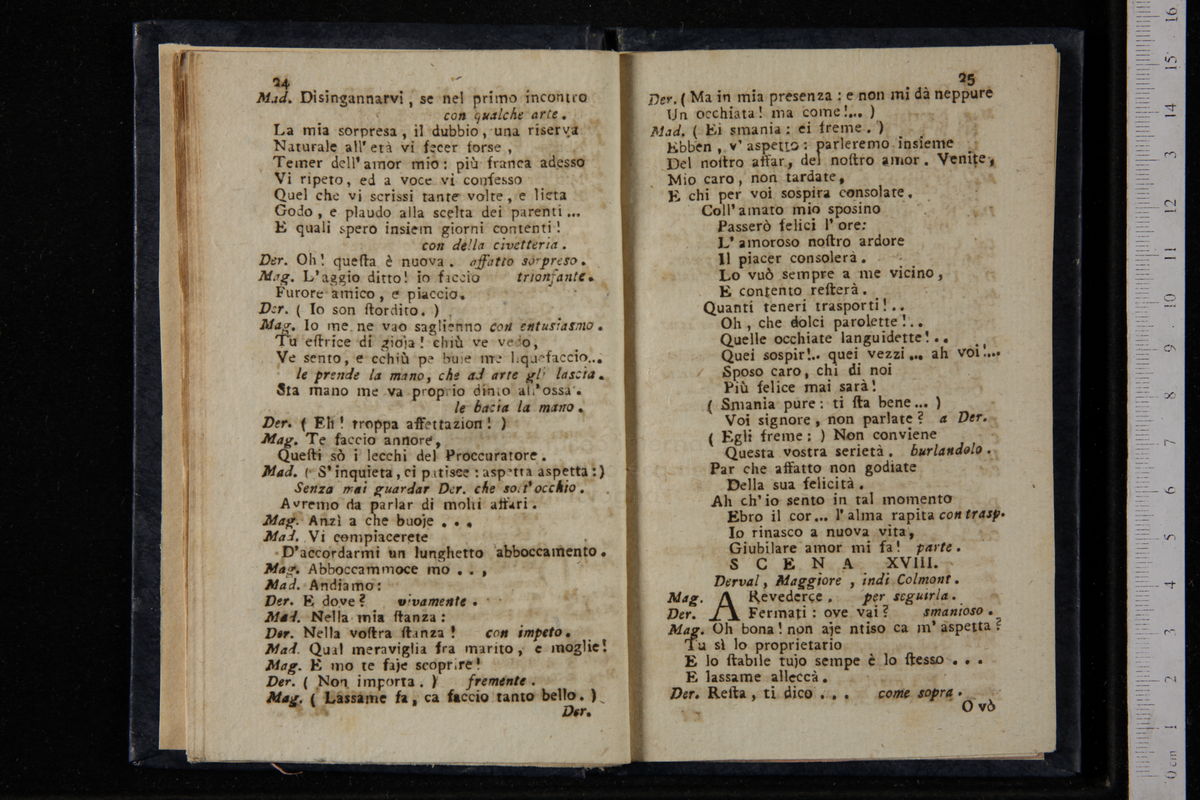 24
Mad. Disingannarvi, se nel primo incontro
con qualche arte.
La mia sorpresa, il dubbio, una riserva
Naturale all'età vi fecer forse,
Temer dell'amor mio: più franca adesso
Vi ripeto, ed a voce vi confesso
Quel che vi scrissi tante volte, e lieta
Godo, e plaudo alla scelta dei parenti...
E quali spero insiem giorni contenti!
con della civetteria.
Der. Oh! questa è nuova. affatto sorpreso.
Mag. L'aggio ditto! io faccio trionfante.
Furore amico, e piaccio.
Der. ( Io son stordito. )
Mag. Io me ne vao saglienno con entusiasmo.
Tu estrice di gioja! chiù ve vedo,
Ve sento, e cchiù pe buje me liquefaccio...
le prende la mano, che ad arte gli lascia.
Sta mano me va proprio dinto all'ossa.
le bacia la mano.
Der. ( Eh! troppa affettazion! )
Mag. Te faccio annore,
Questi sò i lecchi del Proccuratore.
Mad. ( S'inquieta, ci patisce: aspetta aspetta:)
Senza mai guardar Der. che sott'occhio.
Avremo da parlar di molti affari.
Mag. Anzi a che buoje...
Mad. Vi compiacerete
D'accordarmi un lunghetto abboccamento.
Mag. Abboccammoce mo..,
Mad. Andiamo:
Der. E dove? vivamente.
Mad. Nella mia stanza:
Der. Nella vostra stanza! con impeto.
Mad. Qual meraviglia fra marito, e moglie!
Mag. E mo te faje scoprire!
Der. ( Non importa. ) fremente.
Mag. ( Lassame fa, ca faccio tanto bello. )
Der.
25
Der. ( Ma in mia presenza: e non mi dà neppure
Un occhiata! ma come!... )
Mad. ( Ei smania: ei freme. )
Ebben, v'aspetto: parleremo insieme
Del nostro affar, del nostro amor. Venite,
Mio caro, non tardate,
E chi per voi sospira consolate.
Coll'amato mio sposino
Passerò felici l'ore:
L'amoroso nostro ardore
Il piacer consolerà.
Lo vuò sempre a me vicino,
E contento resterà.
Quanti teneri trasporti!..
Oh, che dolci parolette!..
Quelle occhiate languidette!..
Quei sospir!.. quei vezzi... ah voi!...
Sposo caro, chi di noi
Più felice mai sarà!
( Smania pure: ti sta bene... )
Voi signore, non parlate? a Der.
( Egli freme: ) Non conviene
Questa vostra serietà. burlandolo.
Par che affatto non godiate
Della sua felicità.
Ah ch'io sento in tal momento
Ebro il cor... l'alma rapita con trasp.
Io rinasco a nuova vita,
Giubilare amor mi fa! parte.
SCENA XVIII.
Derval, Maggiore, indi Colmont.
Mag. A Revederce. per seguirla.
Der. Fermati: ove vai? smanioso.
Mag. Oh bona! non aje ntiso ca m'aspetta?
Tu sì lo proprietario
E lo stabile tujo sempe è lo stesso...
E lassame alleccà.
Der. Resta, ti dico... come sopra.
O vò